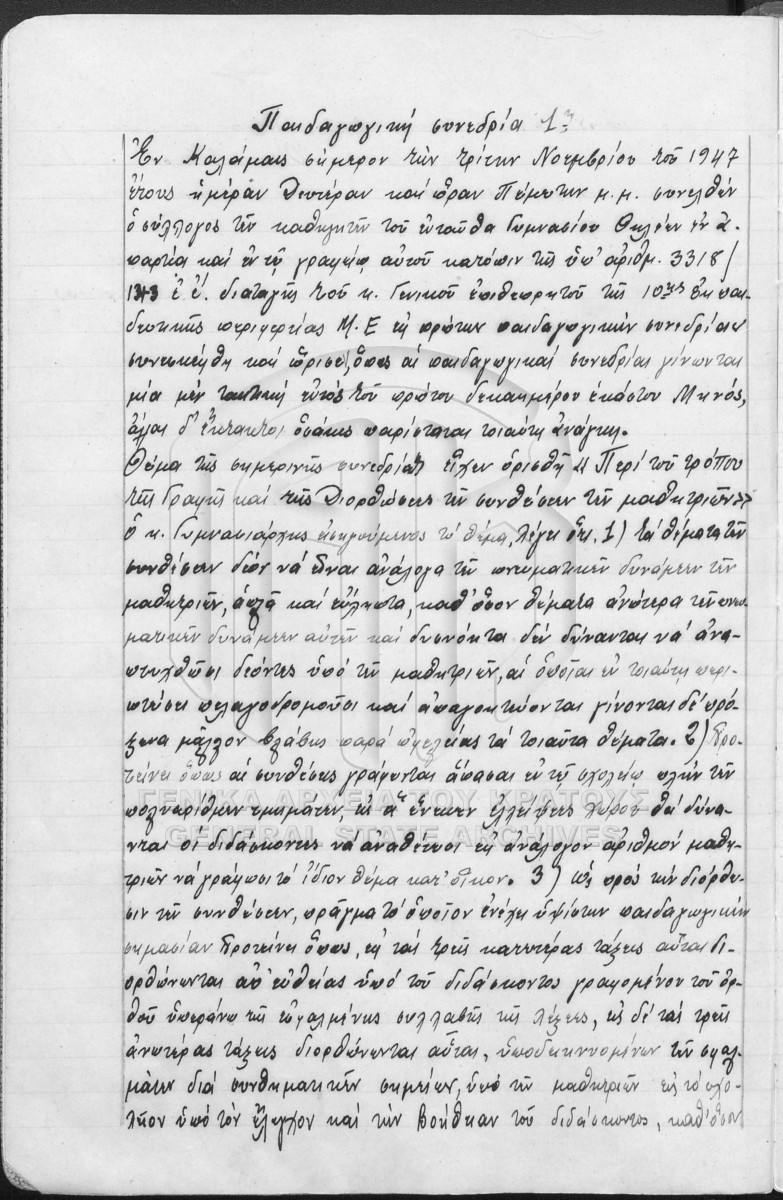 Παιδαγωγική συνεδρία 1η
Ἐν Καλάμαις σήμερον τὴν τρίτην Νοεμβρίου τοῦ 1947
ἔτους ἡμέραν Δευτέραν καὶ ὥραν Πέμπτην μ.μ. συνελθὼν
ὁ σύλλογος τῶν καθηγητῶν τοῦ ἐνταῦθα Γυμνασίου Θηλέων ἐν ἀ-
παρτίᾳ καὶ ἐν τῷ γραφείῳ αὐτοῦ κατόπιν τῆς ὑπ' ἀριθμ. 3318/
1343 ἐ.ἔ. διαταγῆς τοῦ κ. Γενικοῦ ἐπιθεωρητοῦ τῆς 10ης ἐκπαι-
δευτικῆς περιφερείας Μ.Ε εἰς πρώτην παιδαγωγικὴν συνεδρίαν
συνεσκέφθη καὶ ὥρισε, ὅπως αἱ παιδαγωγικαὶ συνεδρίαι γίνωνται
μία μὲν τακτικὴ ἐντὸς τοῦ πρώτου δεκαημέρου ἑκάστου Μηνός,
ἄλλαι δ' ἔκτακτοι ὁσάκις παρίσταται τοιαύτη ἀνάγκη.
Θέμα τῆς σημερινῆς συνεδρίας εἶχεν ὁρισθῆ «Περὶ τοῦ τρόπου
τῆς Γραφῆς καὶ τῆς Διορθώσεως τῶν συνθέσεων τῶν μαθητριῶν»
Ὁ κ. Γυμνασιάρχης εἰσηγούμενος τὸ θέμα, λέγει ὅτι. 1) τὰ θέματα τῶν
συνθέσεων δέον νὰ εἶναι ἀνάλογα τῶν πνευματικῶν δυνάμεων τῶν
μαθητριῶν, ἁπλᾶ καὶ εὔληπτα, καθ' ὅσον θέματα ἀνώτερα τῶν πνευ-
ματικῶν δυνάμεων αὐτῶν καὶ δυσνόητα δὲν δύνανται νὰ ἀνα-
πτυχθῶσι δεόντως ὑπὸ τῶν μαθητριῶν, αἱ ὁποῖαι ἐν τοιαύτῃ περι-
πτώσει πελαγοδρομοῦσι καὶ ἀπαγοητεύονται γίνονται δὲ πρό-
ξενα μᾶλλον βλάβης παρὰ ὠφελείας τὰ τοιαῦτα θέματα. 2) Προ-
τείνει ὅπως αἱ συνθέσεις γράφωνται ἅπασαι ἐν τῷ σχολείῳ πλὴν τῶν
πολυαρίθμων τμημάτων, εἰς ἃ ἕνεκεν ἐλλείψεως χώρου θὰ δύνα-
νται οἱ διδάσκοντες νὰ ἀναθέτωσι εἰς ἀνάλογον ἀριθμὸν μαθη-
τριῶν νὰ γράφωσι τὸ ἴδιον θέμα κατ' οἶκον. 3) ὡς πρὸς τὴν διόρθω-
σιν τῶν συνθέσεων, πρᾶγμα τὸ ὁποῖον ἐνέχει ὑψίστην παιδαγωγικὴν
σημασίαν προτείνει ὅπως, εἰς τὰς τρεῖς κατωτέρας τάξεις αὗται δι-
ορθώνωνται ἀπ' εὐθείας ὑπὸ τοῦ διδάσκοντος γραφομένου τοῦ ὀρ-
θοῦ ὑπεράνω τῆς ἐσφαλμένης συλλαβῆς τῆς λέξεως, εἰς δὲ τὰς τρεῖς
ἀνωτέρας τάξεις διορθώνωνται αὗται, ὑποδεικνυομένων τῶν σφαλ-
μάτων διὰ συνθηματικῶν σημείων, ὑπὸ τῶν μαθητριῶν εἰς τὸ σχο-
λεῖον ὑπὸ τὸν ἔλεγχον καὶ τὴν βοήθειαν τοῦ διδάσκοντος, καθ' ὅσον
ΓΕΝΙΚΑ ΑΡΧΕΙΑ ΤΟΥ ΚΡΑΤΟΥΣ
GENERAL STATE ARCHIVES